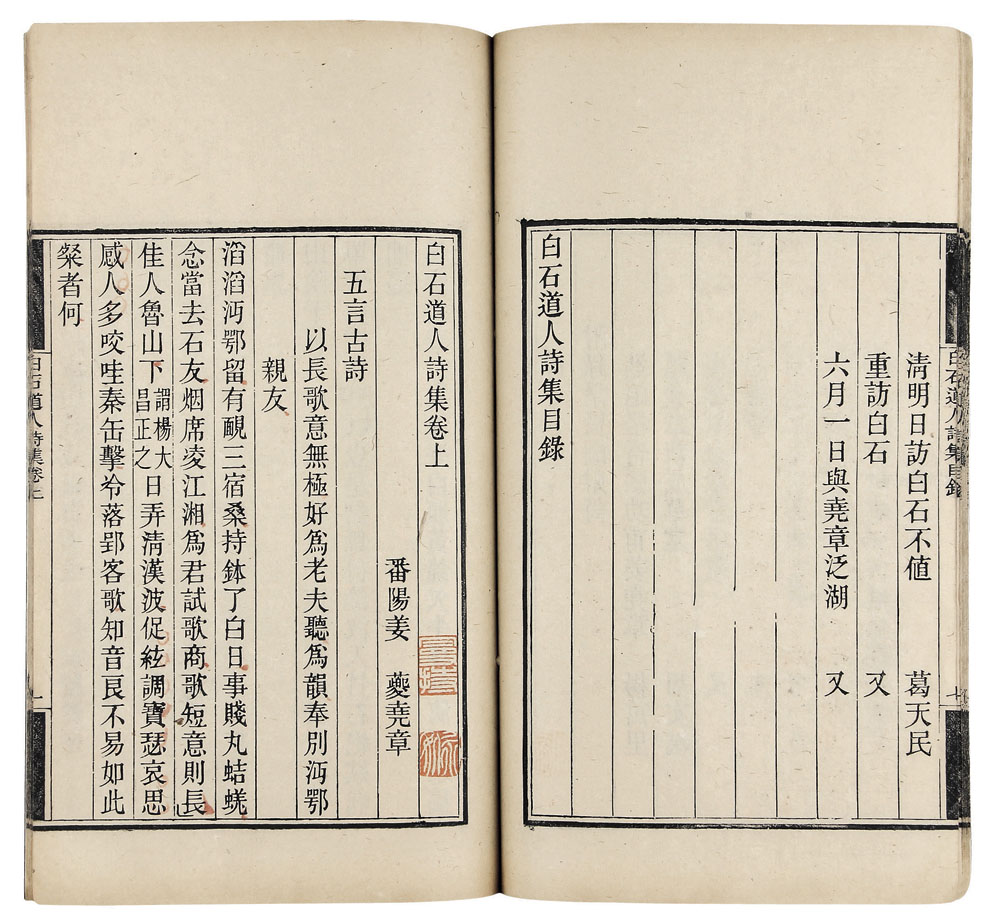 清明日訪白石不値 葛天民
重訪白石 又
六月一日與堯章泛湖 又
白石道人詩集目錄
白石道人詩集目錄 七
白石道人詩集卷上
番陽姜 夔堯章
五言古詩
以長歌意無極好爲老夫聽爲韻奉別沔鄂
親友
滔滔沔鄂留有靦三宿桑持鉢了白日事賤丸蛣蜣
念當去石友烟席凌江湘爲君試歌商歌短意則長
佳人魯山下謂楊大昌正之日弄清漢波促絃調寶瑟哀思
感人多咬哇秦缶擊兮落郢客歌知音良不易如此
粲者何
白石道人詩集卷上 一